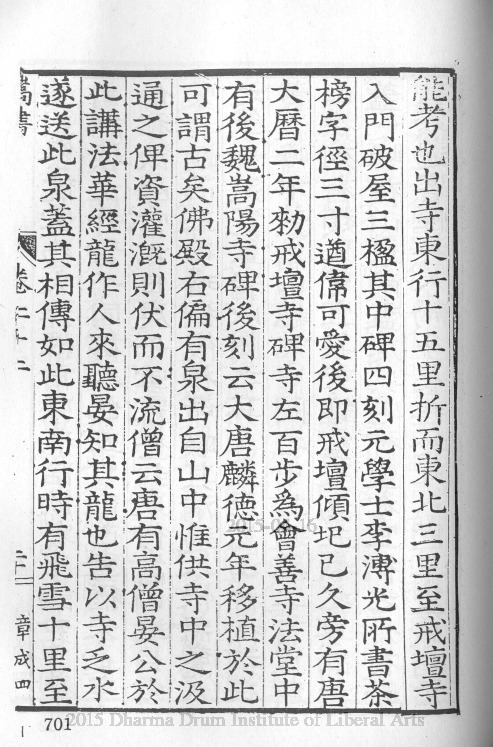 能考也出寺東行十五里折而東北三里至戒壇寺
入門破屋三楹其中碑四刻元學士李溥光所書茶
榜字徑三寸遒偉可愛後即戒壇傾圯已久旁有唐
大曆二年勑戒壇寺碑寺左百步為會善寺法堂中
有後魏嵩陽寺碑後刻云大唐麟德元年移植於此
可謂古矣佛殿右偏有泉出自山中惟供寺中之汲
通之俾資灌溉則伏而不流僧云唐有高僧晏公於
此講法華經龍作人來聽晏知其龍也告以寺乏水
遂送此泉蓋其相傳如此東南行時有飛雪十里至
嵩書
卷二十二
二十一
章成四
701
2015 Dharma Drum Institute of Liberal Arts